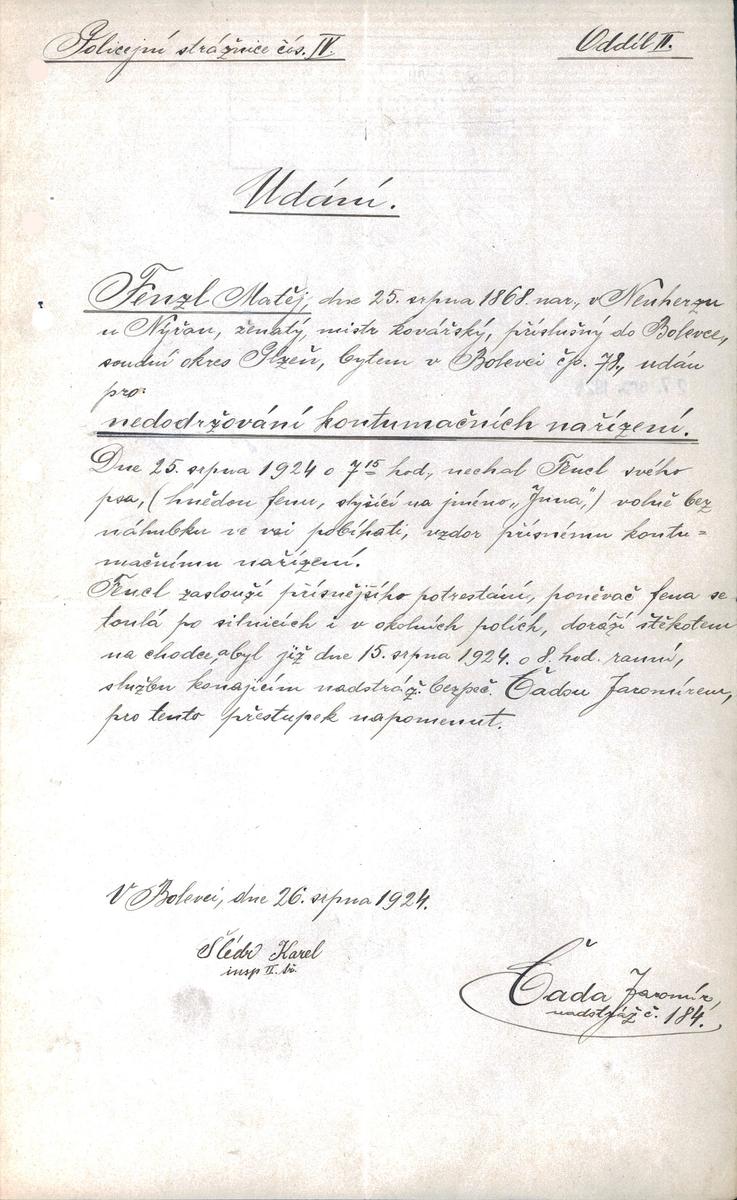 Policejní strážnice čís. IV.
Oddíl II.
Udání.
Fenzl Matěj, dne 25. srpna 1868 nar., v Neuherzu
u Nýřan, ženatý, mistr kovářský, příslušný do Bolevce,
soudní okres Plzeň, bytem v Bolevci čp. 78., udán
pro
nedodržování kontumačních nařízení.
Dne 25. srpna 1924 o 7 15 hod., nechal Fencl svého
psa, (hnědou fenu, slyšící na jméno „Juna“,) volně bez
náhubku ve vsi pobíhati, vzdor přísnému kontu=
mačnímu nařízení.
Fencl zaslouží přísnějšího potrestání, poněvač fena se
toulá po silnicích i v okolních polích, doráží štěkotem
na chodce, a byl již dne 15. srpna 1924. o 8. hod. ranní,
službu konajícím nadstráž. bezpeč. Čadou Jaromírem,
pro tento přestupek napomenut.
V Bolevci, dne 26. srpna 1924.
Šlédr Karel
insp II. tř.
Čada Jaromír,
nadstráž č. 184.